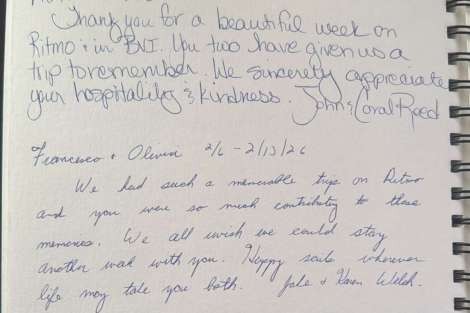 Thank you for a beautiful week on
Ritmo + in BVI. You two have given us a
trip to remember. We sincerely appreciate
your hospitality & kindness. John & Carol Reed
Francesco + Olivia 2/6 - 2/13/26
We had such a memorable trip on Ritmo
and you were so much contributing to those
memories. We all wish we could stay
another week with you. Happy sails wherever
life may take you both. Jake + Karen Welsh.